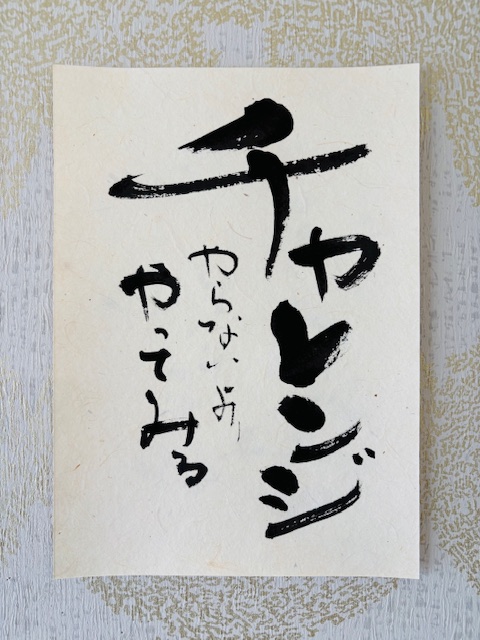 チャレンジ
やらないより
やってみる